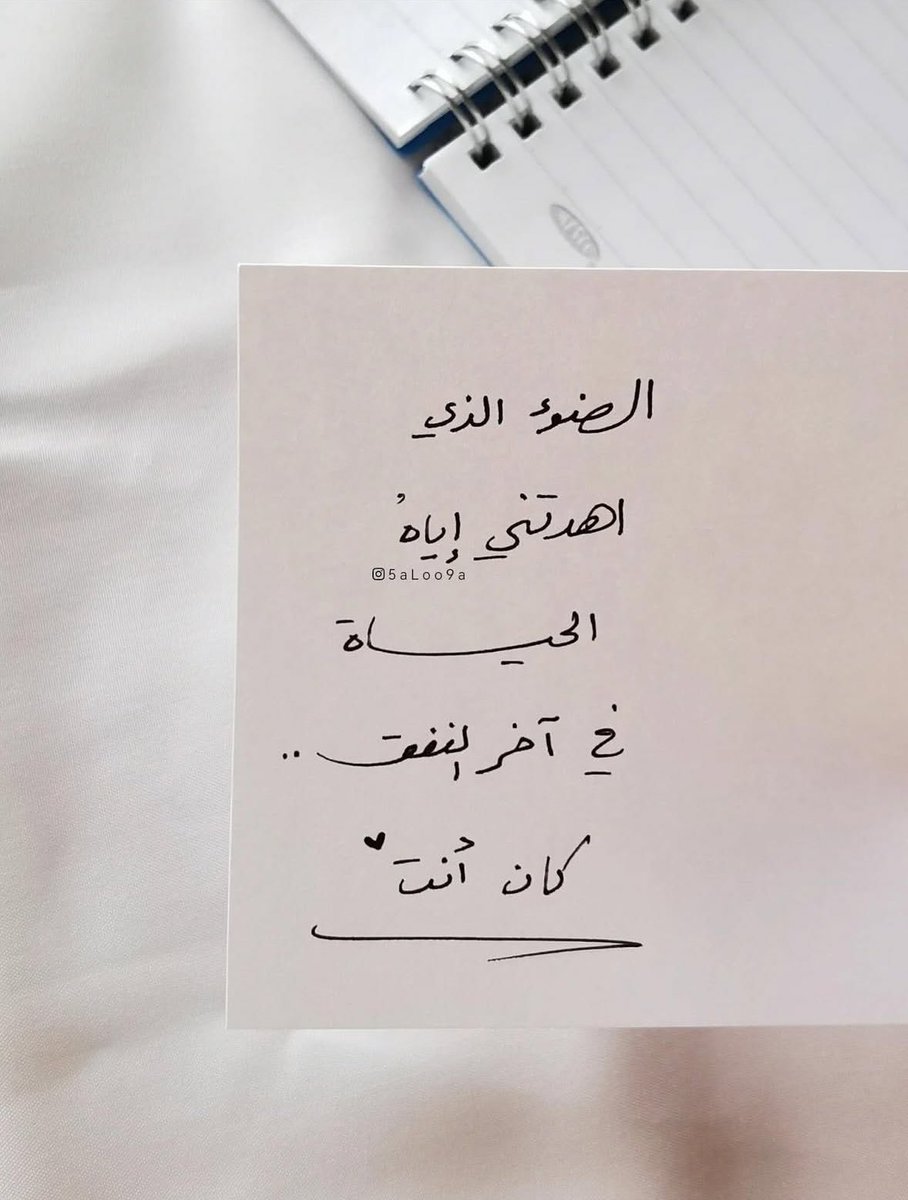 الضوء الذي
اهدتني إياهُ
5aLoo9a
الحياة
في آخر النفق ..
كان أنت